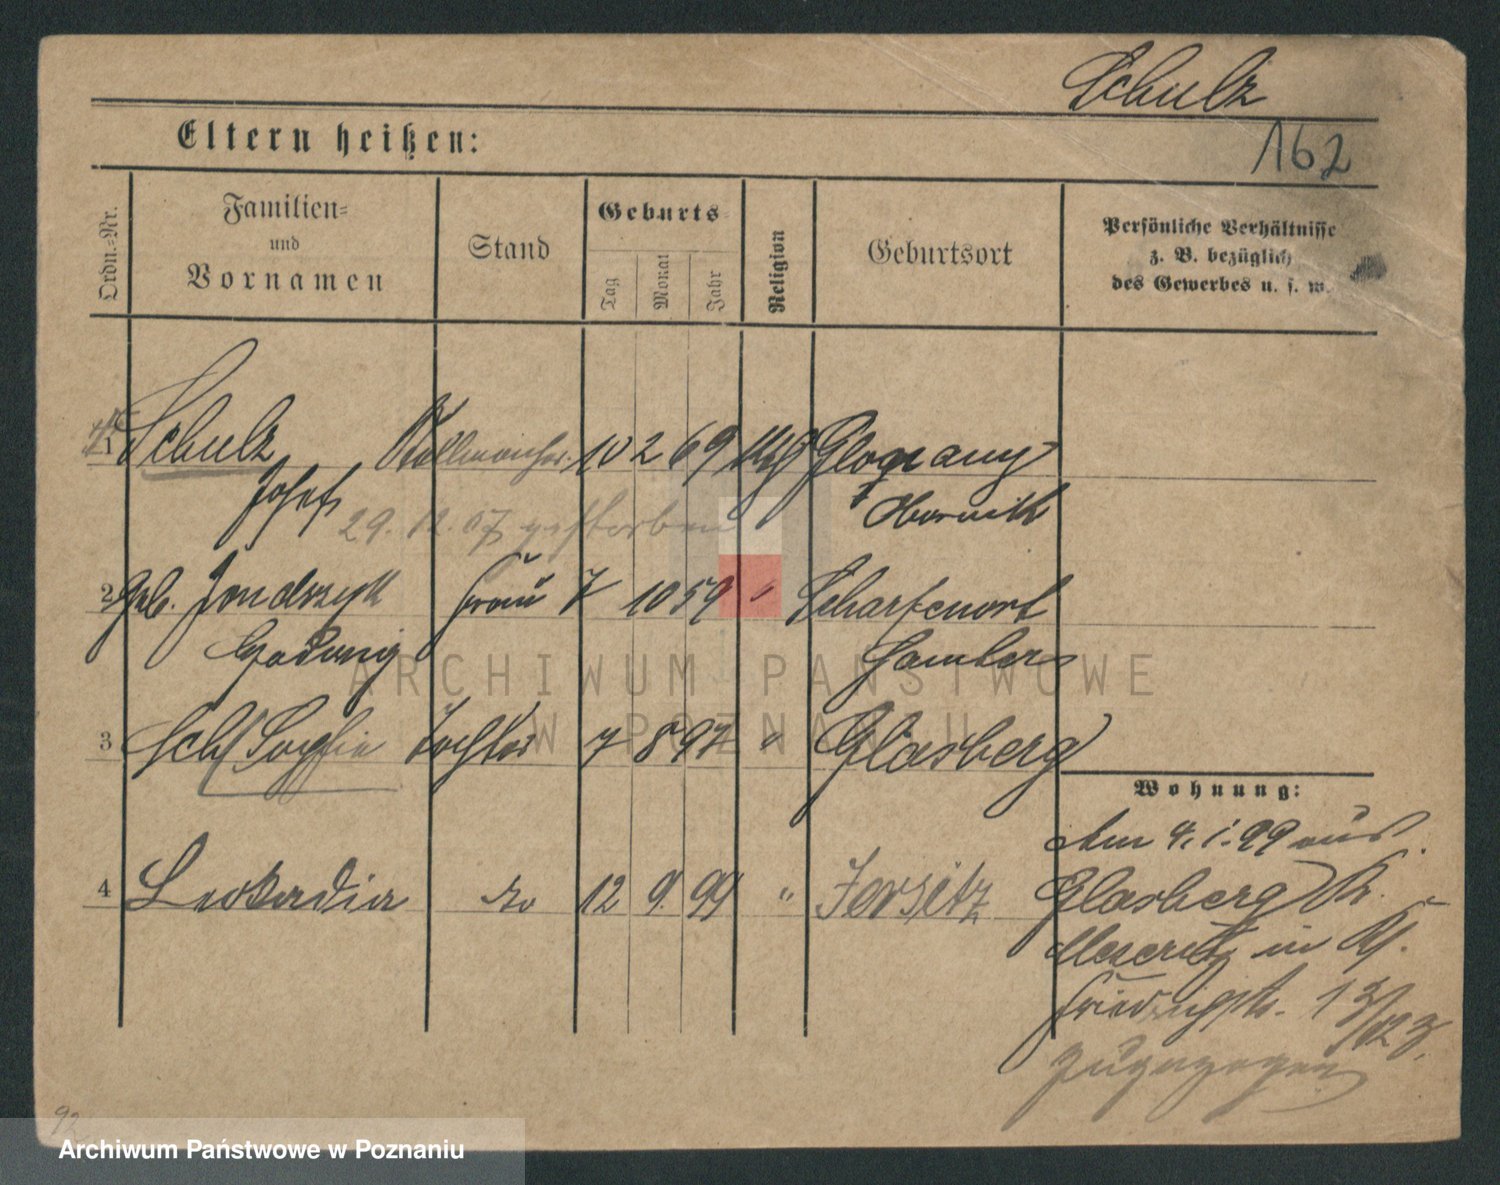 Schulz
Eltern heißen:
162
Ordn.=Nr.
Familien=
und
Vornamen
Stand
Geburts
Tag
Monat
Jahr
Religion
Geburtsort
Persönliche Verhältnisse
z. B. bezüglich
des Gewerbes u. s. w.
1 Schulz 10 2 69
Josef
29. 12. 07 gestorben
2 geb. Frau 7 10 59 " Scharfenort
Hedwig
3 Sch Sophie Tochter 7 8 97 " Glasberg
4 Leokadia do 12 9. 99 " Jersitz
Wohnung:
Am 4. 1. 99 aus
Glasberg Kr.
Meseritz in
Friedrichstr. 13
zugezogen
92
ARCHIWUM PAŃSTWOWE
W POZNANIU
Archiwum Państwowe w Poznaniu